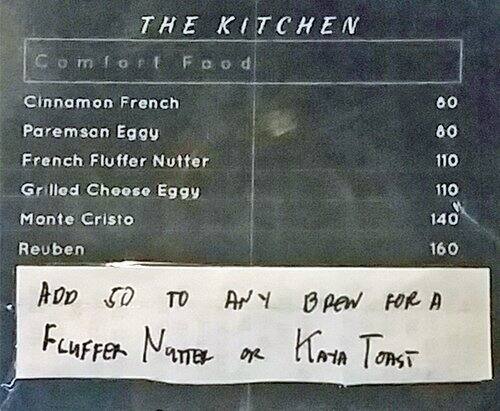 THE KITCHEN
Comfort Food
Cinnamon French 80
Paremson Eggy 80
French Fluffer Nutter 110
Grilled Cheese Eggy 110
Monte Cristo 140
Reuben 160
ADD 50 TO ANY BREW FOR A
FLUFFER NUTTER OR KAYA TOAST